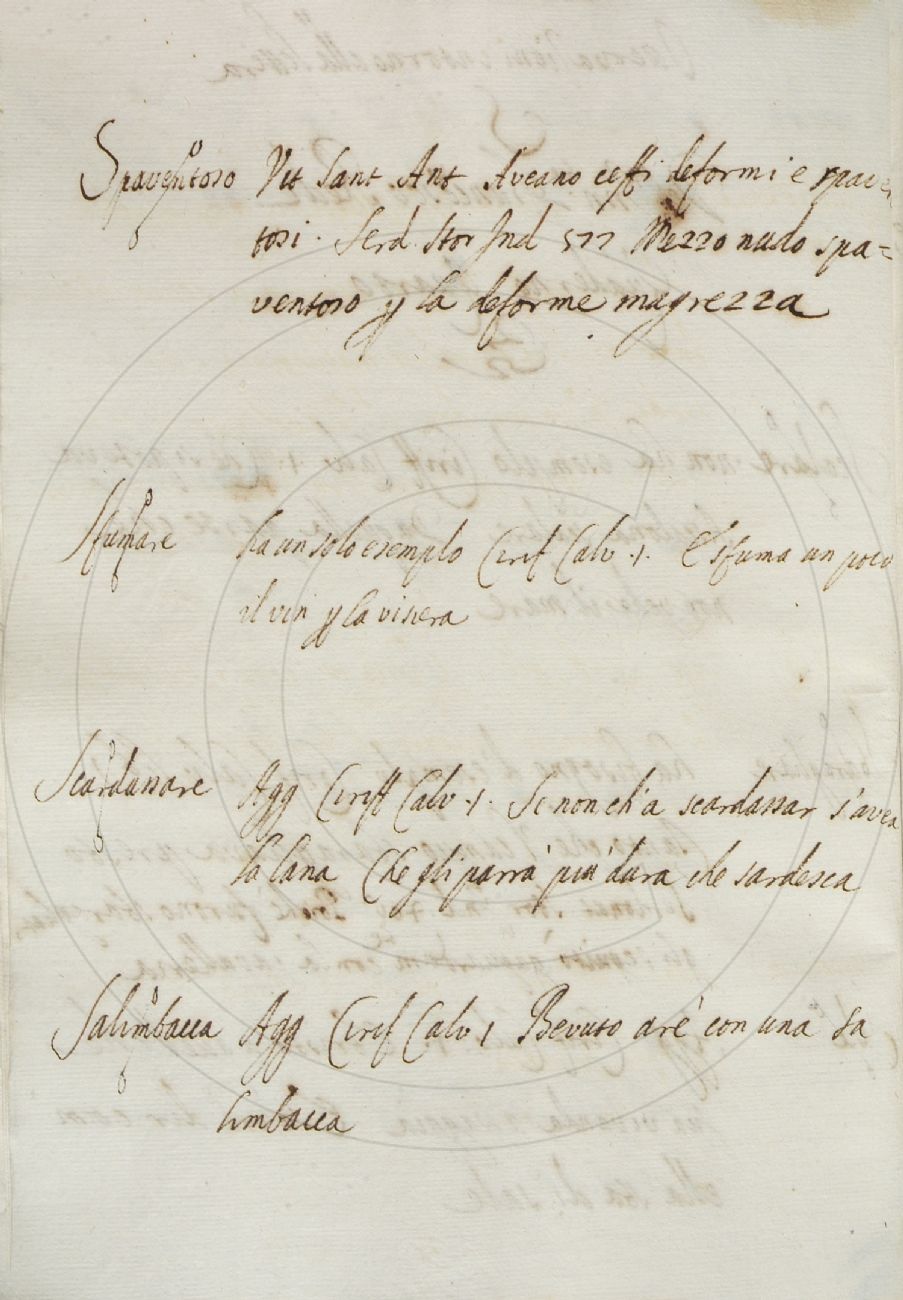 Spaventoso Vit Sant Ant Aveano ceffi deformi e spaven
tosi. Serd Stor Ind 577 Mezzo nudo spa=
ventoso p la deforme magrezza
Sfumare ha un solo esemplo Cirif Calv. 1. E sfuma un poco
il vin p la visiera
Scardassare Agg Ciriff Calv. 1. Se non ch'a scardassar s'avea
la lana Che gli parrà più dura che sardesca
Salimbacca Agg Cirif Calv 1 Bevuto are' con una sa
limbacca